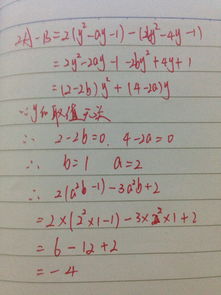 2A-B=2(y²-ay-1)-(2by²-4y-1)
=2y²-2ay-1-2by²+4y+1
=(2-2b)y²+(4-2a)y
∵y和取值无关
∴ 2-2b=0. 4-2a=0
∴ b=1 a=2
∴ 2(a²b-1)-3a²b+2
=2×(2²×1-1)-3×2²×1+2
=6-12+2
=-4